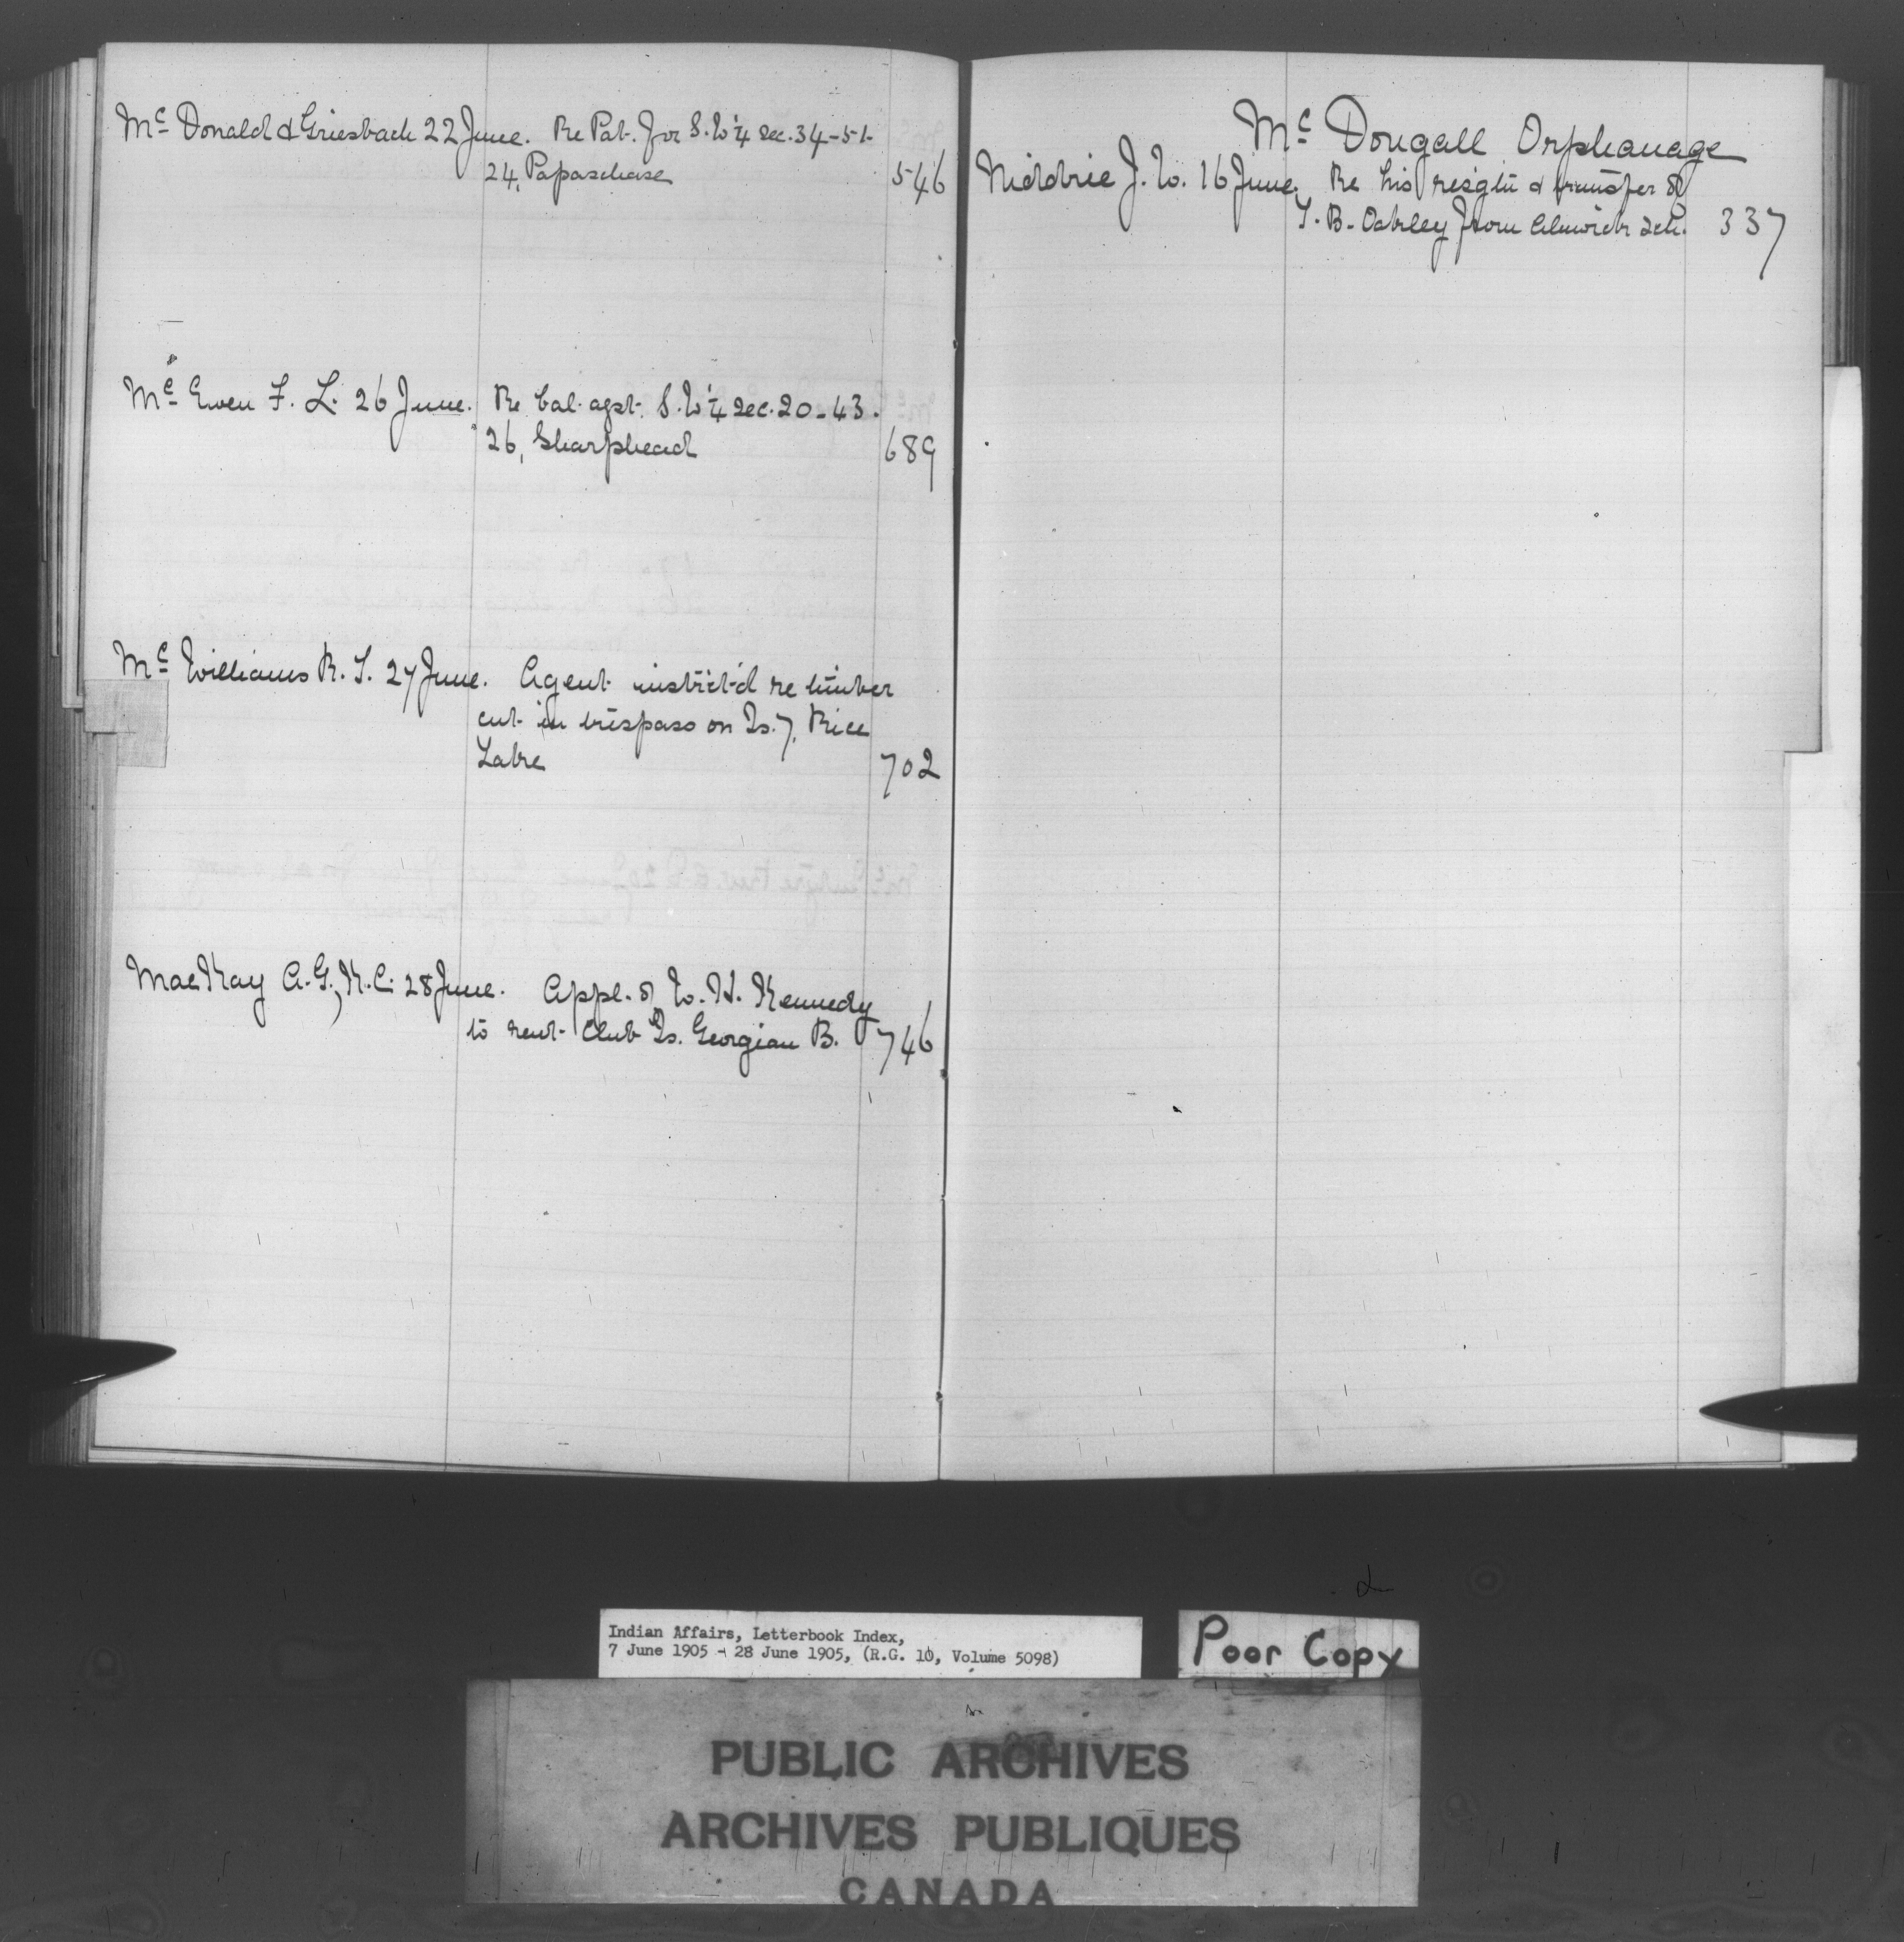 Mc Donald & Griesbach 22 June. Re Pat. for S.W ¼ sec. 34-51-
24, Papaschase 546
Mc Ewen F. L. 26 June. Re bal. agst. S.W ¼ sec. 20-43.
26, Sharphead 689
Mc Williams R. J. 27 June. Agent instr'ct'd re timber
cut in trespass on Is. 7, Rice
Lake 702
MacKay A. G., K.C. 28 June. Appl. of W. H. Kennedy
to rent Club Is. Georgian B. 746
Mc Dougall Orphanage
Niddrie J. W. 16 June. Re his resig'tn & transfer of
T. B. Oakley from Alnwick sch. 337
Indian Affairs, Letterbook Index,
7 June 1905 - 28 June 1905, (R.G. 10, Volume 5098)
Poor Copy
PUBLIC ARCHIVES
ARCHIVES PUBLIQUES
CANADA